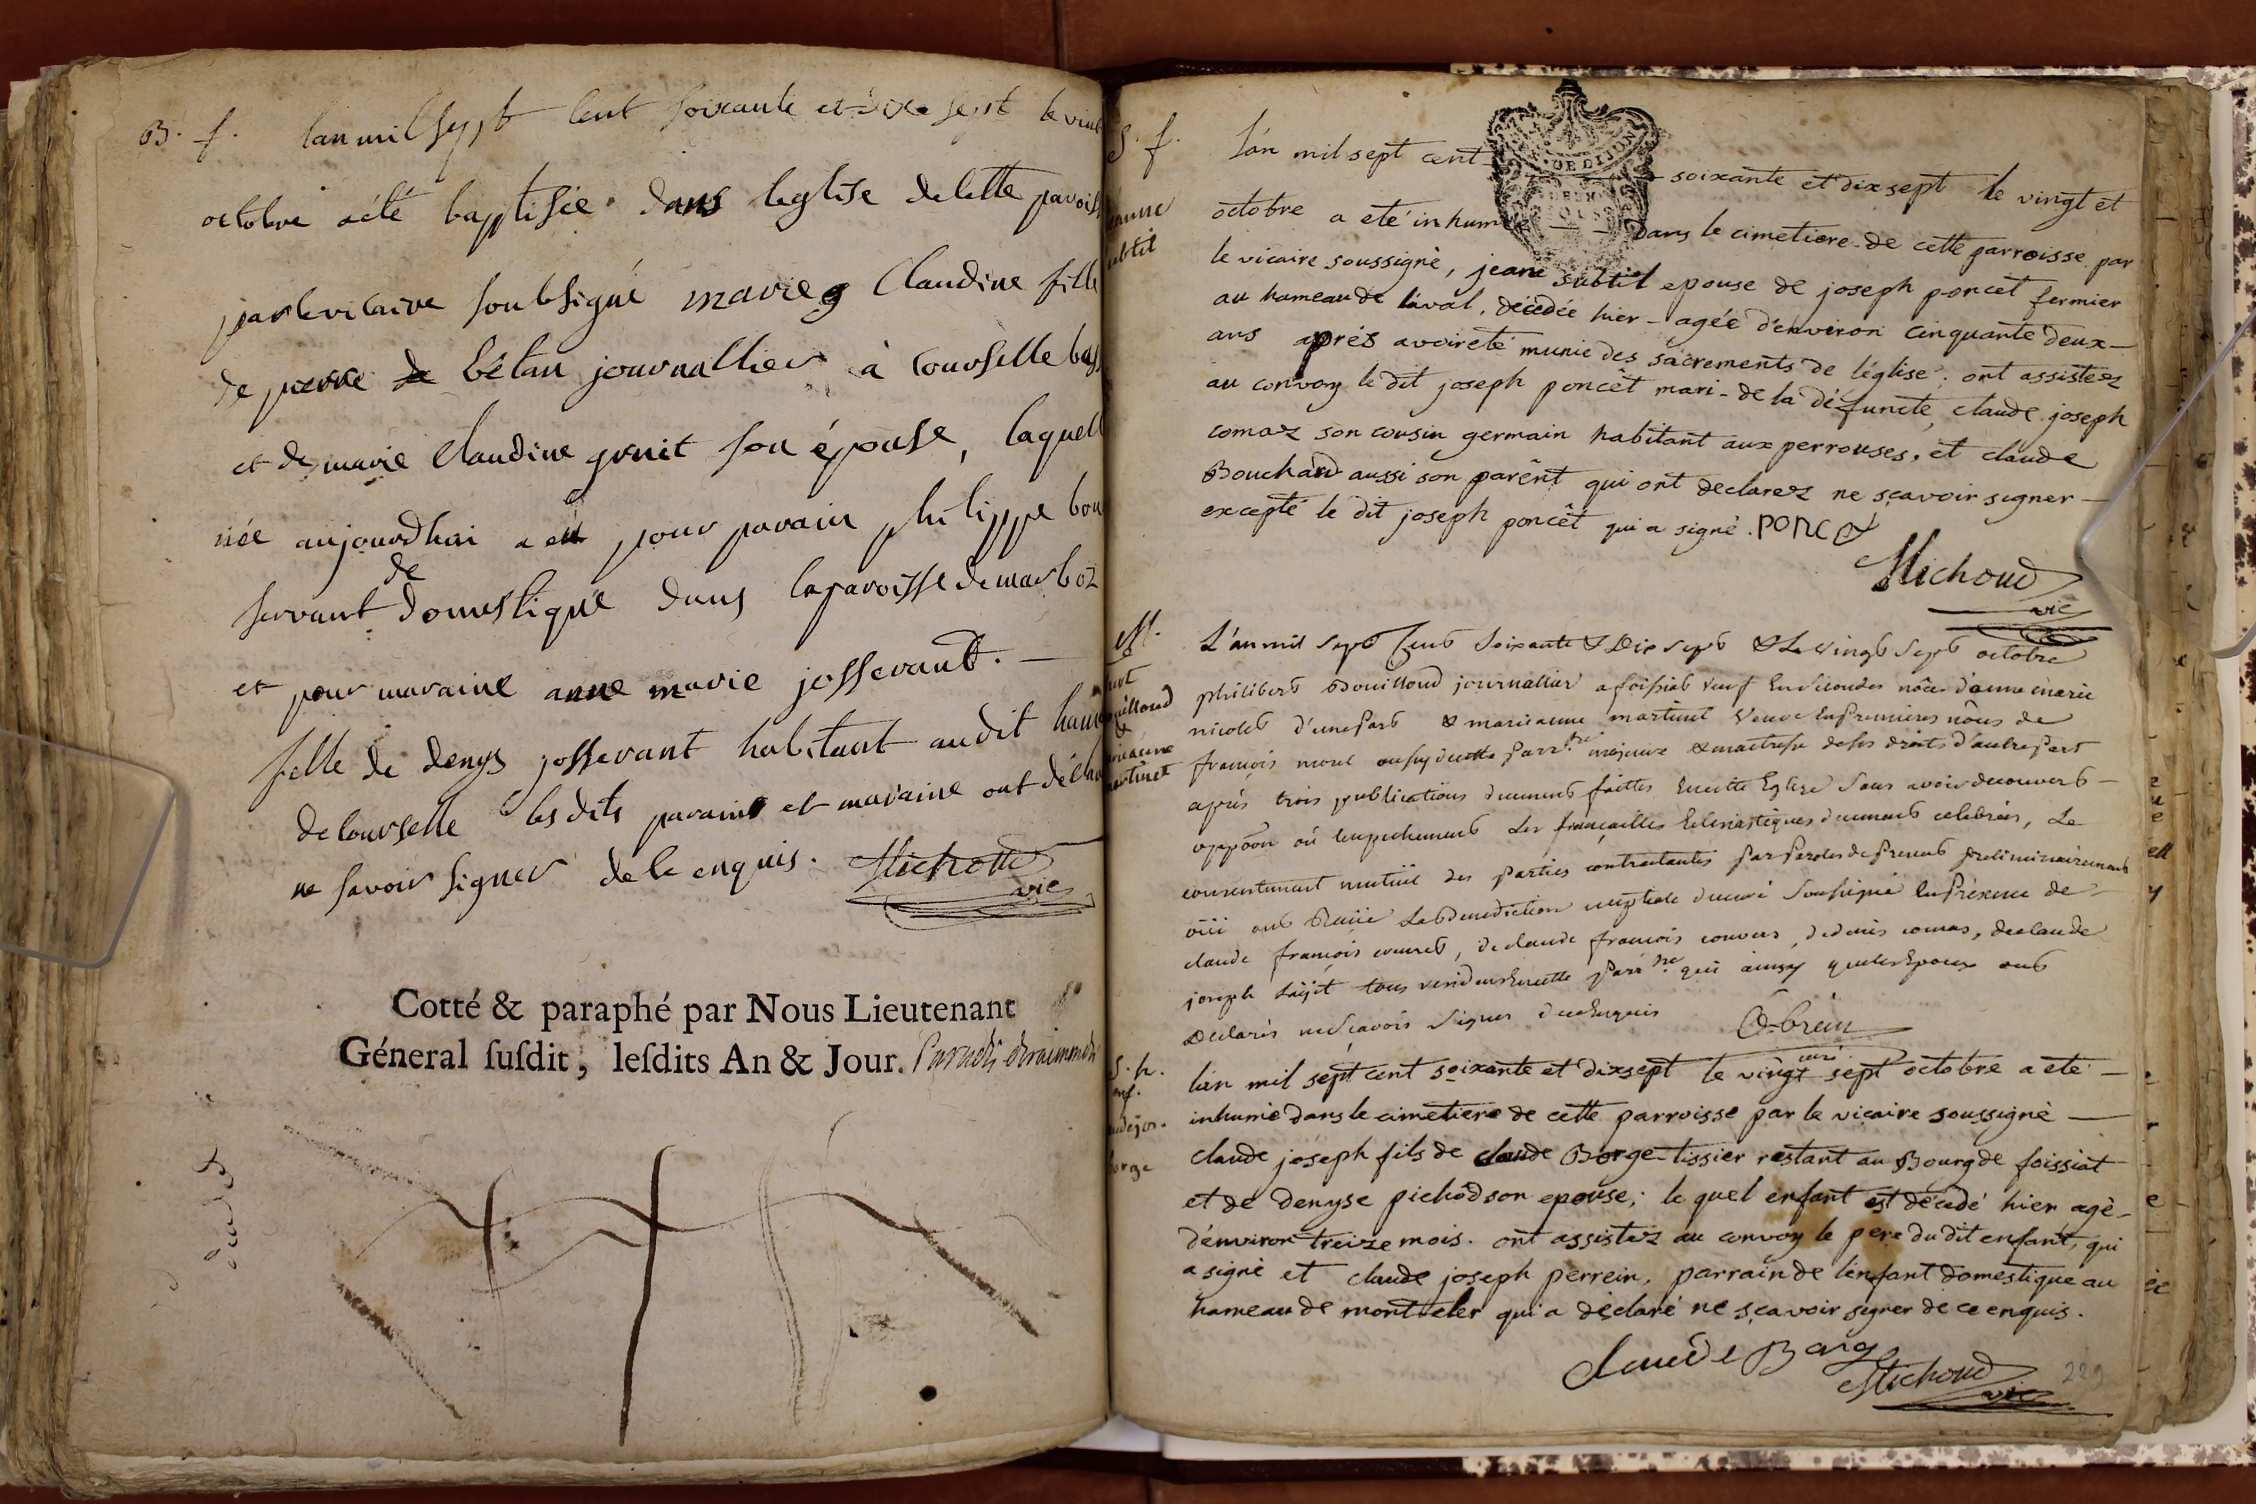 B. f. lan mil sept cent soixante et dix sept le vint
octobre a été baptisée dans leglise de cette parois
par le vicaire soubsigné marie Claudine fille
de pierre betan journallier à Courselle bas
et de marie Claudine gruit son épouse, laquell
née aujourdhui a eu pour parain philippe bon
servant de Domestique dans la paroisse de marboz
et pour maraine anne marie josserant. —
fille de denys josserant habitant au dit ham
de Courselle les dits parains et maraine ont décla
ne savoir signer de ce enquis. Michoud
vic
Cotté & paraphé par Nous Lieutenant
Géneral ſuſdit, leſdits An & Jour.
S. f. l'an mil sept cent soixante et dix sept le vingt et
octobre a eté inhumée dans le cimetiere de cette parroisse par
jeanne
subtil
le vicaire soussigné, jeane subtil epouse de joseph poncet fermier
au hameau de laval, décédée hier agée d'environ cinquante deux —
ans aprés avoir eté munie des sacrements de l'église; ont assistez
au convoy le dit joseph poncêt mari de la défuncte, claude joseph
comaz son cousin germain habitant aux perrouses, et claude
Bouchard aussi son parênt qui ont declarez ne sçavoir signer —
excepté le dit joseph poncêt qui a signé. poncet
Michoud
vic
M. L'an mil sept Cent soixante & Dix sept & Le vingt sept octobre
philibert Bouilloud journallier a foissiat veuf en secondes nôces d'anne marie
nicolet d'une part & marianne martinet veuve en premieres nôces de
françois morel aussy de cette parr.sse majeure & maitresse de ses droits d'autre part
aprés trois publications duement faittes en cette Eglize sans avoir decouvert —
oppôon où empechement Les fiançailles Eclesiastiques duement celebrées, Le
consentement mutuel des parties contractantes par paroles de present preliminairement
oüi ont Reçüe La Benediction nuptiale du curé soussigné en présence de
claude françois couvret, de claude françois convers, de denis comas, de claude
joseph tous residents en cette parr.sse qui ainsy que les Epoux ont
Declarés ne scavoir signer de ce Enquis O-brein
curé
S. h. l'an mil sept cent soixante et dixsept le vingt sept octobre a eté —
inhumé dans le cimetiere de cette parroisse par le vicaire soussigné —
claude joseph fils de claude Borge tissier restant au Bourg de foissiat
et de denyse pichod son epouse; le quel enfant est décedé hier agé
d'environ treize mois. ont assistez au convoy le pere du dit enfant, qui
a signé et claude joseph perrein, parrain de l'enfant domestique au
hameau de montceler qui a déclaré ne sçavoir signer de ce enquis.
Claude Borg
Michoud
vic
229